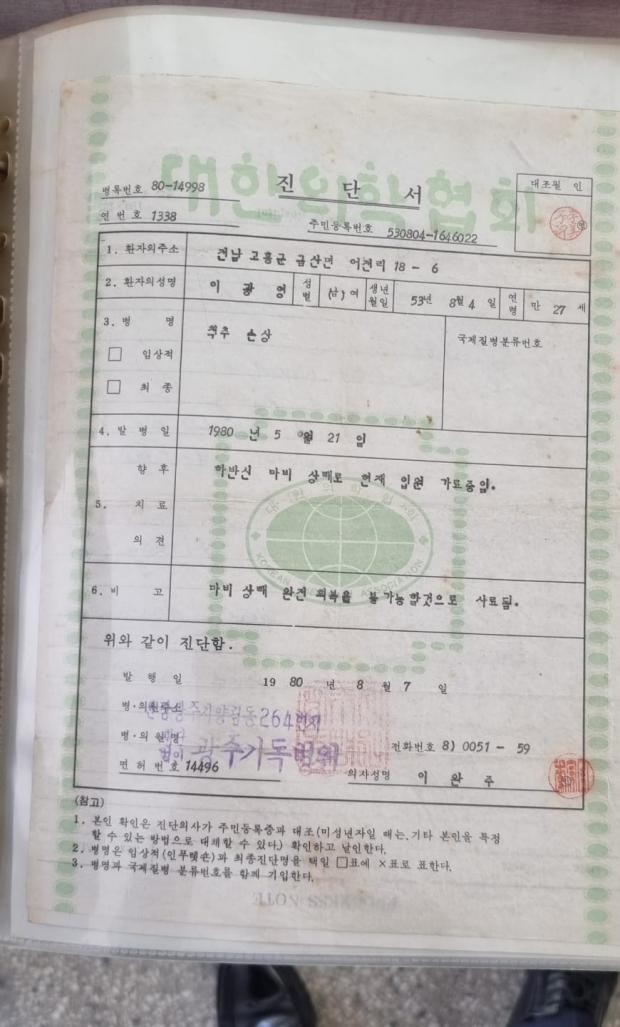 진 단 서
병록번호 80-14998
연 번 호 1338
주민등록번호 530804-1646022
대조필 인
1. 환자의주소 전남 고흥군 금산면 어전리 18 - 6
2. 환자의성명 이 광 영 성별 (남) 여 생년월일 53년 8월 4 일 연령 만 27 세
3. 병 명 척추 손상 국제질병분류번호
□ 임상적
□ 최 종
4. 발 병 일 1980 년 5 월 21 일
5. 향 후 치 료 의 견 하반신 마비 상태로 현재 입원 가료중임.
대한의학협회
KOREAN ASSOCIATION
6. 비 고 마비 상태 완전 회복을 불가능할것으로 사료됨.
위와 같이 진단함.
발 행 일 19 80 년 8 월 7 일
병·의원주소 광주시양림동264번지
병·의원명 광주기독병원
전화번호 8) 0051 - 59
면 허 번 호 14496 의사성명 이 완 주
(참고)
1. 본인 확인은 진단의사가 주민등록증과 대조(미성년자일 때는.기타 본인을 특정
할 수 있는 방법으로 대체할 수 있다) 확인하고 날인한다.
2. 병명은 임상적(인푸렛숀)과 최종진단명을 택일 □표에 ×표로 표한다.
3. 병명과 국제질병 분류번호를 함께 기입한다.